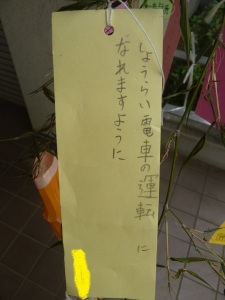 しょうらい電車の運転 に
なれますように